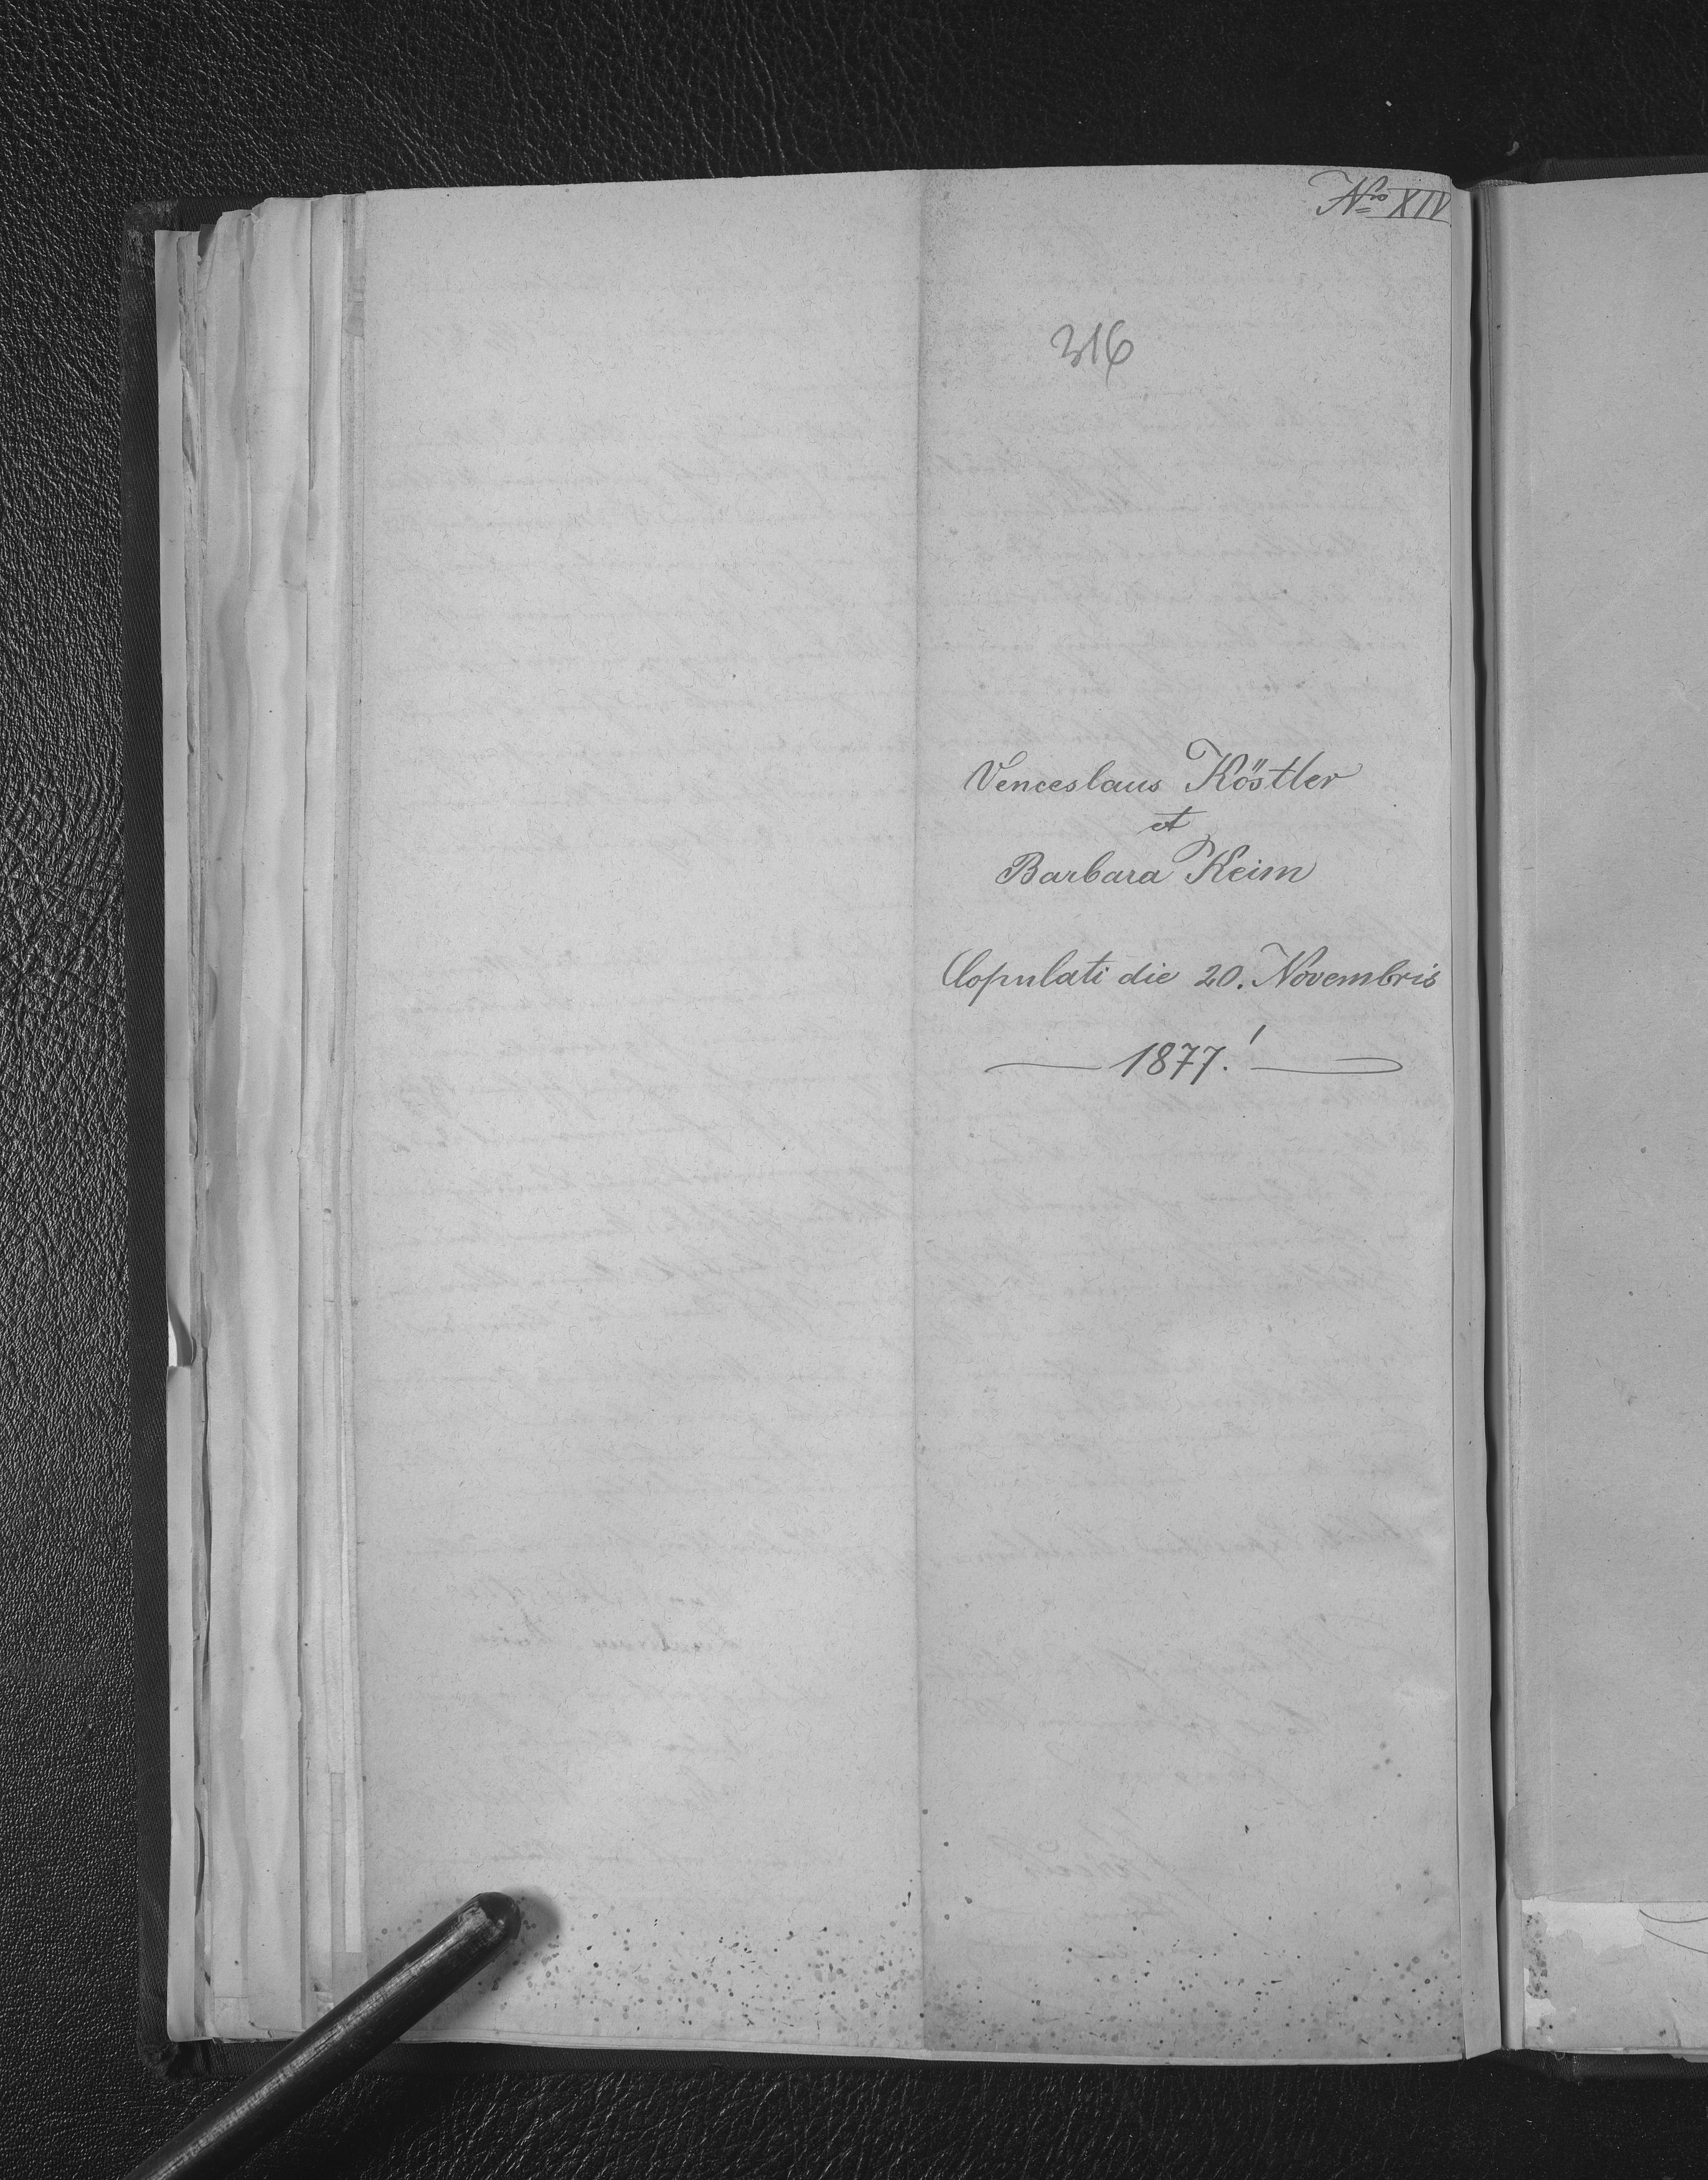 Nro XIV
316
Venceslaus Köstler
et
Barbara Keim
Copulati die 20. Novembris
1877.!